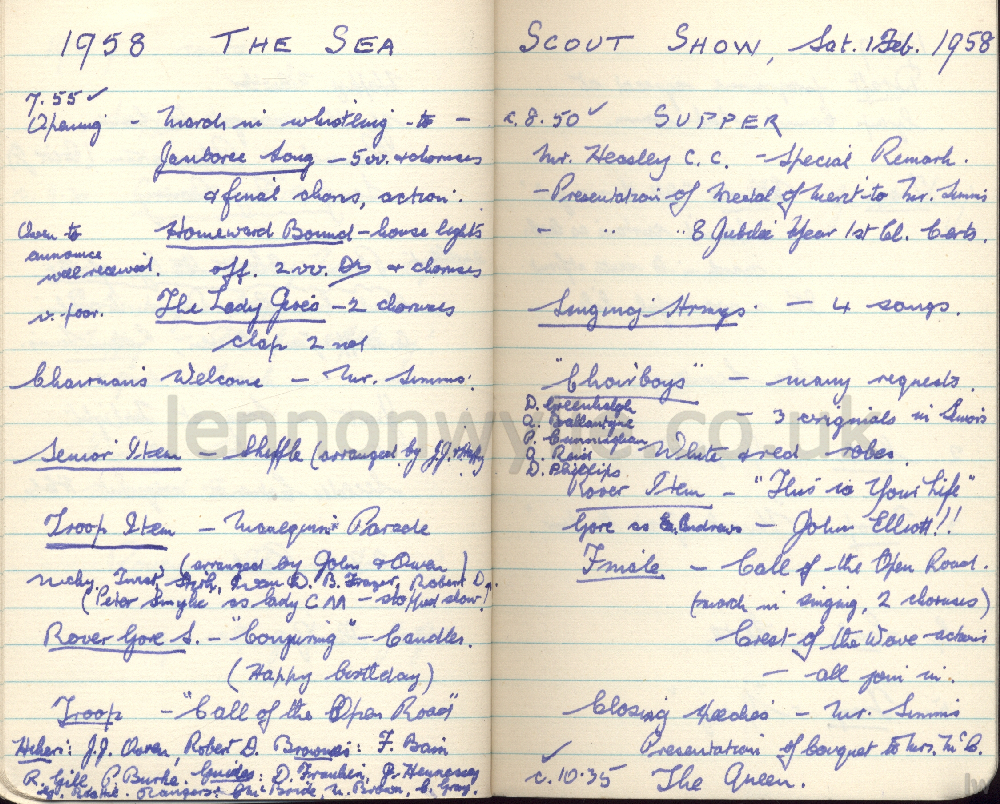 1958 THE SEA
7.55 ✓
Opening - March in whistling - to -
Jamboree Song - 5 vv. & choruses
& final chorus, action.
Owen to announce
well received.
Homeward Bound - house lights
off. 2 vv. & chorus
v. poor.
The Lady Gores - 2 choruses
clap 2 not
Chairman's Welcome - Mr. Simms.
Senior Item - Skiffle (arranged by J.J.
Troop Item - Mannequin Parade
(arranged by John & Owen)
Nicky, B. Frazer, Robert D.
(Peter Smythe as lady CM - stopped show!
Rover Gore S. - "Conjuring" - Candles.
(Happy birthday)
Troop - "Call of the Open Road"
Hikers: J.J. Owen, Robert D. Brownies: F. Bain
R. Gill, P. Burke. Guides: D. Hennessy
Rangers: McBride, M. Brown, C. Gray.
SCOUT SHOW, Sat. 1 Feb. 1958
c. 8.50 ✓ SUPPER
Mr. Heasley C.C. - Special Remark.
- Presentation of Medal of Merit to Mr. Simms
- " " 8 Jubilee Year 1st Cl. Certs.
Singing Strings - 4 songs.
"Choirboys" - many requests.
D. Greenhalgh
A. Ballantyne
P. Cunningham
A. Reid
D. Phillips
- 3 originals in Seniors
White & red robes
Rover Item - "This is Your Life"
Gore as E. Andrews - John Elliott!!
Finale - Call of the Open Road.
(march in singing, 2 choruses)
Crest of the Wave - actions
- all join in.
Closing Speeches - Mr. Simms
Presentation of bouquet to Mrs. McC.
✓
c. 10.35 The Queen.
lennonwylie.co.uk
lw